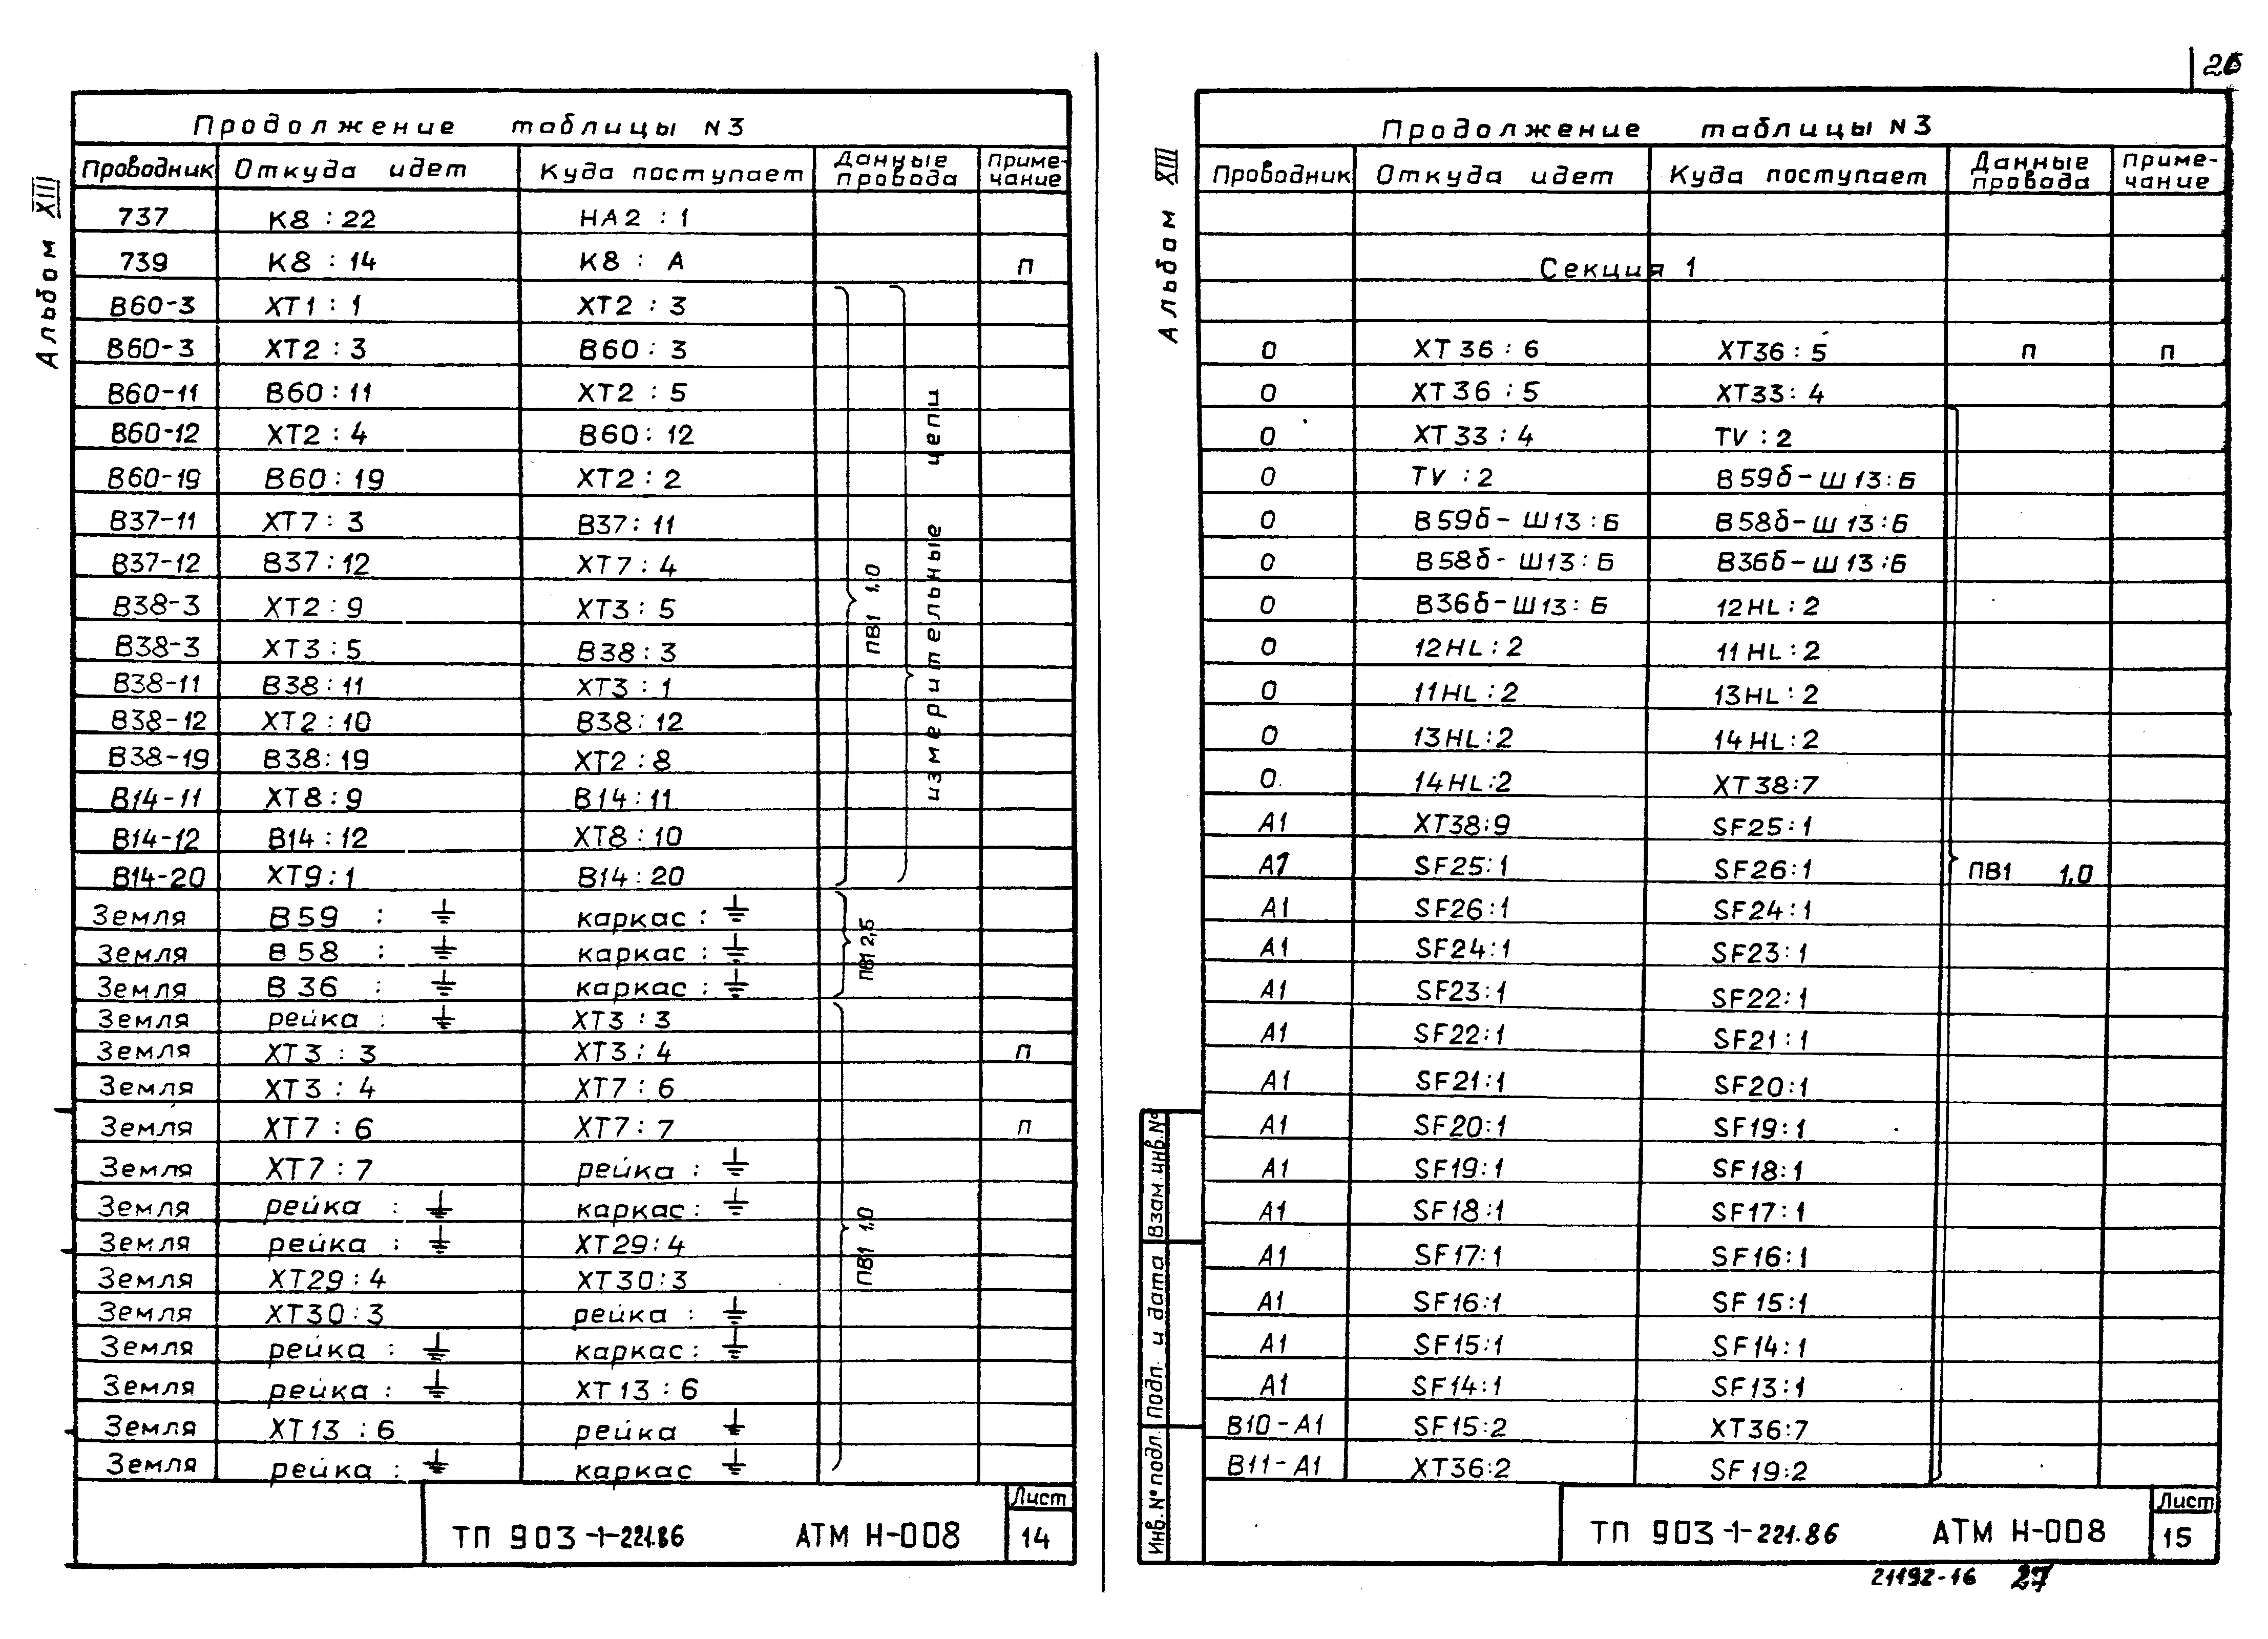 26
Альбом XIII
Продолжение таблицы N3
Проводник Откуда идет Куда поступает Данные провода Приме-чание
737 К8 : 22 НА2 : 1
739 К8 : 14 К8 : А П
В60-3 ХТ1 : 1 ХТ2 : 3
В60-3 ХТ2 : 3 В60 : 3
В60-11 В60 : 11 ХТ2 : 5
В60-12 ХТ2 : 4 В60 : 12
В60-19 В60 : 19 ХТ2 : 2
В37-11 ХТ7 : 3 В37 : 11
В37-12 В37 : 12 ХТ7 : 4
В38-3 ХТ2 : 9 ХТ3 : 5
В38-3 ХТ3 : 5 В38 : 3
В38-11 В38 : 11 ХТ3 : 1
В38-12 ХТ2 : 10 В38 : 12
В38-19 В38 : 19 ХТ2 : 8
В14-11 ХТ8 : 9 В14 : 11
В14-12 В14 : 12 ХТ8 : 10
В14-20 ХТ9 : 1 В14 : 20
ПВ1 1,0
измерительные цепи
Земля В59 : ⏚ каркас : ⏚
Земля В58 : ⏚ каркас : ⏚
Земля В36 : ⏚ каркас : ⏚
ПВ1 2,5
Земля рейка : ⏚ ХТ3 : 3
Земля ХТ3 : 3 ХТ3 : 4 П
Земля ХТ3 : 4 ХТ7 : 6
Земля ХТ7 : 6 ХТ7 : 7 П
Земля ХТ7 : 7 рейка : ⏚
Земля рейка : ⏚ каркас : ⏚
Земля рейка : ⏚ ХТ29 : 4
Земля ХТ29 : 4 ХТ30 : 3
Земля ХТ30 : 3 рейка : ⏚
Земля рейка : ⏚ каркас : ⏚
Земля рейка : ⏚ ХТ13 : 6
Земля ХТ13 : 6 рейка ⏚
Земля рейка : ⏚ каркас ⏚
ПВ1 1,0
ТП 903-1-221.86 АТМ Н-008
Лист
14
Альбом XIII
Продолжение таблицы N3
Проводник Откуда идет Куда поступает Данные провода Приме-чание
Секция 1
0 ХТ36 : 6 ХТ36 : 5 П П
0 ХТ36 : 5 ХТ33 : 4
0 ХТ33 : 4 TV : 2
0 TV : 2 В59б-Ш13:Б
0 В59б-Ш13:Б В58б-Ш13:Б
0 В58б-Ш13:Б В36б-Ш13:Б
0 В36б-Ш13:Б 12HL : 2
0 12HL : 2 11HL : 2
0 11HL : 2 13HL : 2
0 13HL : 2 14HL : 2
0 14HL : 2 ХТ38:7
А1 ХТ38:9 SF25:1
А1 SF25:1 SF26:1 ПВ1 1,0
А1 SF26:1 SF24:1
А1 SF24:1 SF23:1
А1 SF23:1 SF22:1
А1 SF22:1 SF21:1
А1 SF21:1 SF20:1
А1 SF20:1 SF19:1
А1 SF19:1 SF18:1
А1 SF18:1 SF17:1
А1 SF17:1 SF16:1
А1 SF16:1 SF15:1
А1 SF15:1 SF14:1
А1 SF14:1 SF13:1
В10-А1 SF15:2 ХТ36:7
В11-А1 ХТ36:2 SF19:2
Взам.инв.№
Подп. и дата
Инв.№ подл.
ТП 903-1-221.86 АТМ Н-008
Лист
15
21192-16 27